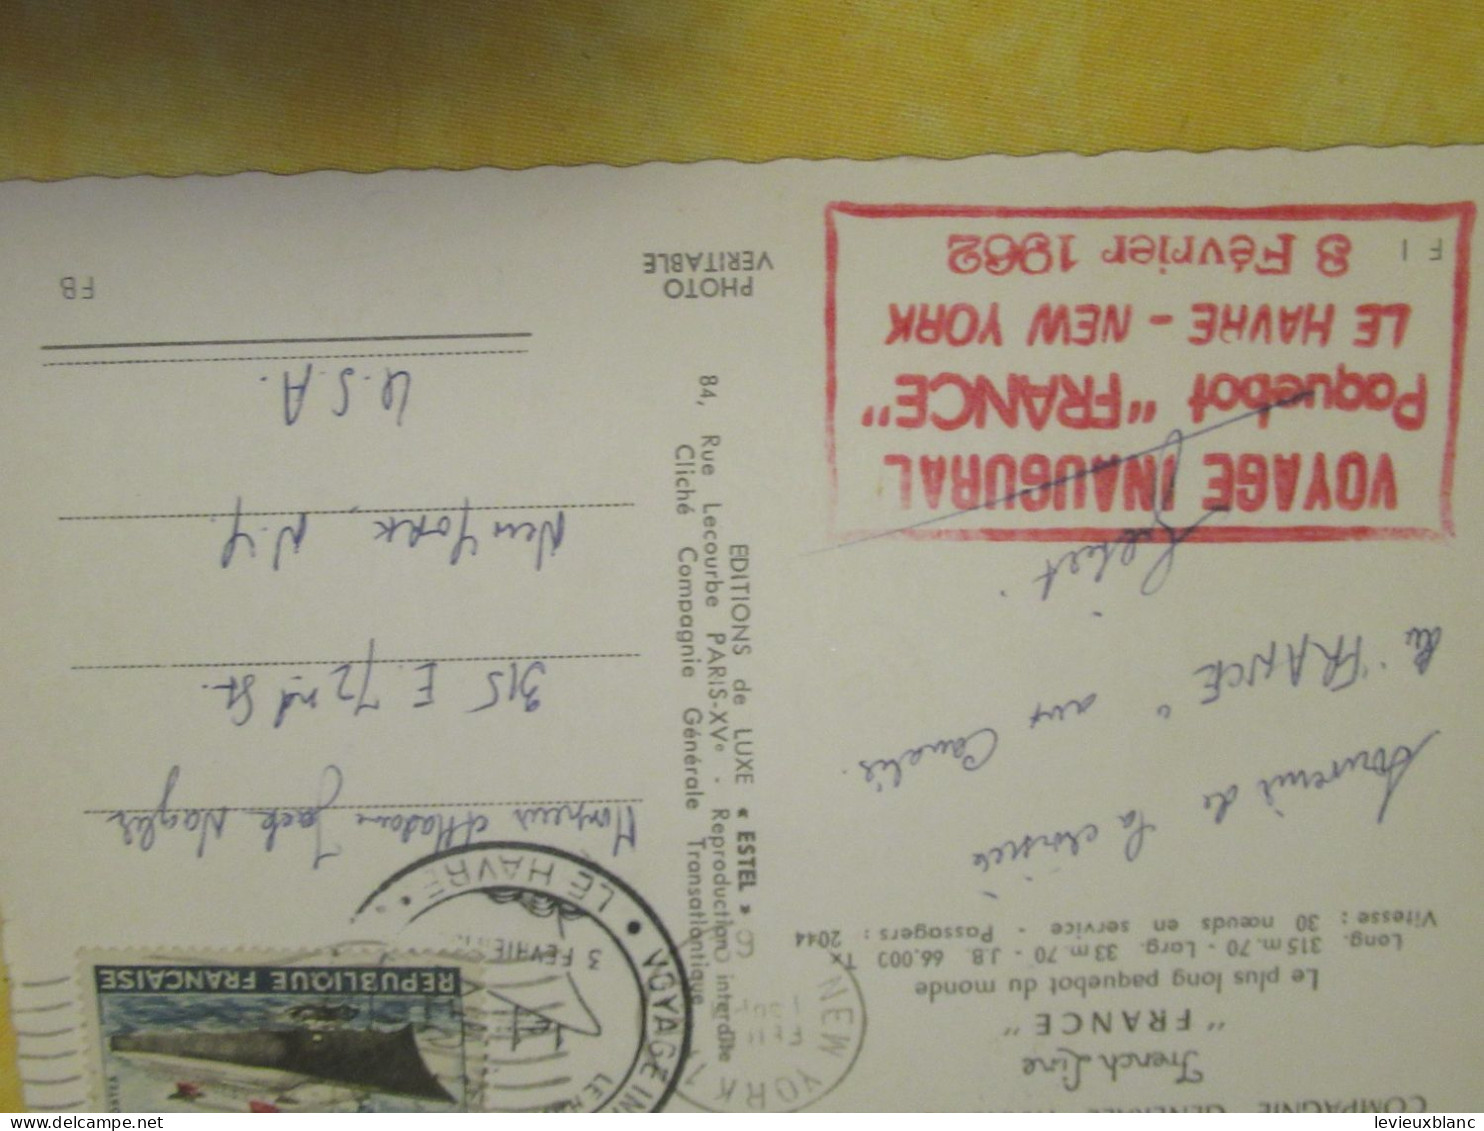 COMPAGNIE GENERALE
French Line
" FRANCE "
Le plus long paquebot du monde
Long. 315 m. 70 - Larg. 33 m. 70 - J.B. 66.000 Tx
Vitesse : 30 nœuds en service - Passagers : 2044
Souvenir de la croisière
du "FRANCE" aux Canaries.
VOYAGE INAUGURAL
Paquebot "FRANCE"
LE HAVRE - NEW YORK
3 Février 1962
F 1
EDITIONS de LUXE « ESTEL »
84, Rue Lecourbe PARIS-XVe - Reproduction interdite
Cliché Compagnie Générale Transatlantique
PHOTO
VERITABLE
NEW YORK 1
FEB
VOYAGE IN
LE HAVRE
3 FÉVRIER
REPUBLIQUE FRANCAISE
Monsieur et Madame Jack Nagler
315 E. 72nd St.
New York, N.Y.
U.S.A.
FB
levieuxblanc